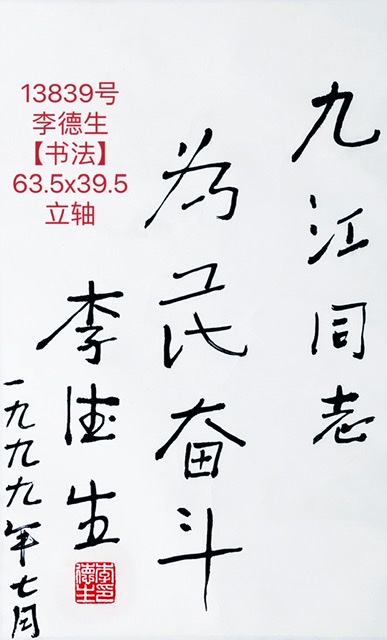 13839号
李德生
【书法】
63.5x39.5
立轴
九江同志
為民奋斗
李德生
一九九九年七月
李印
德生